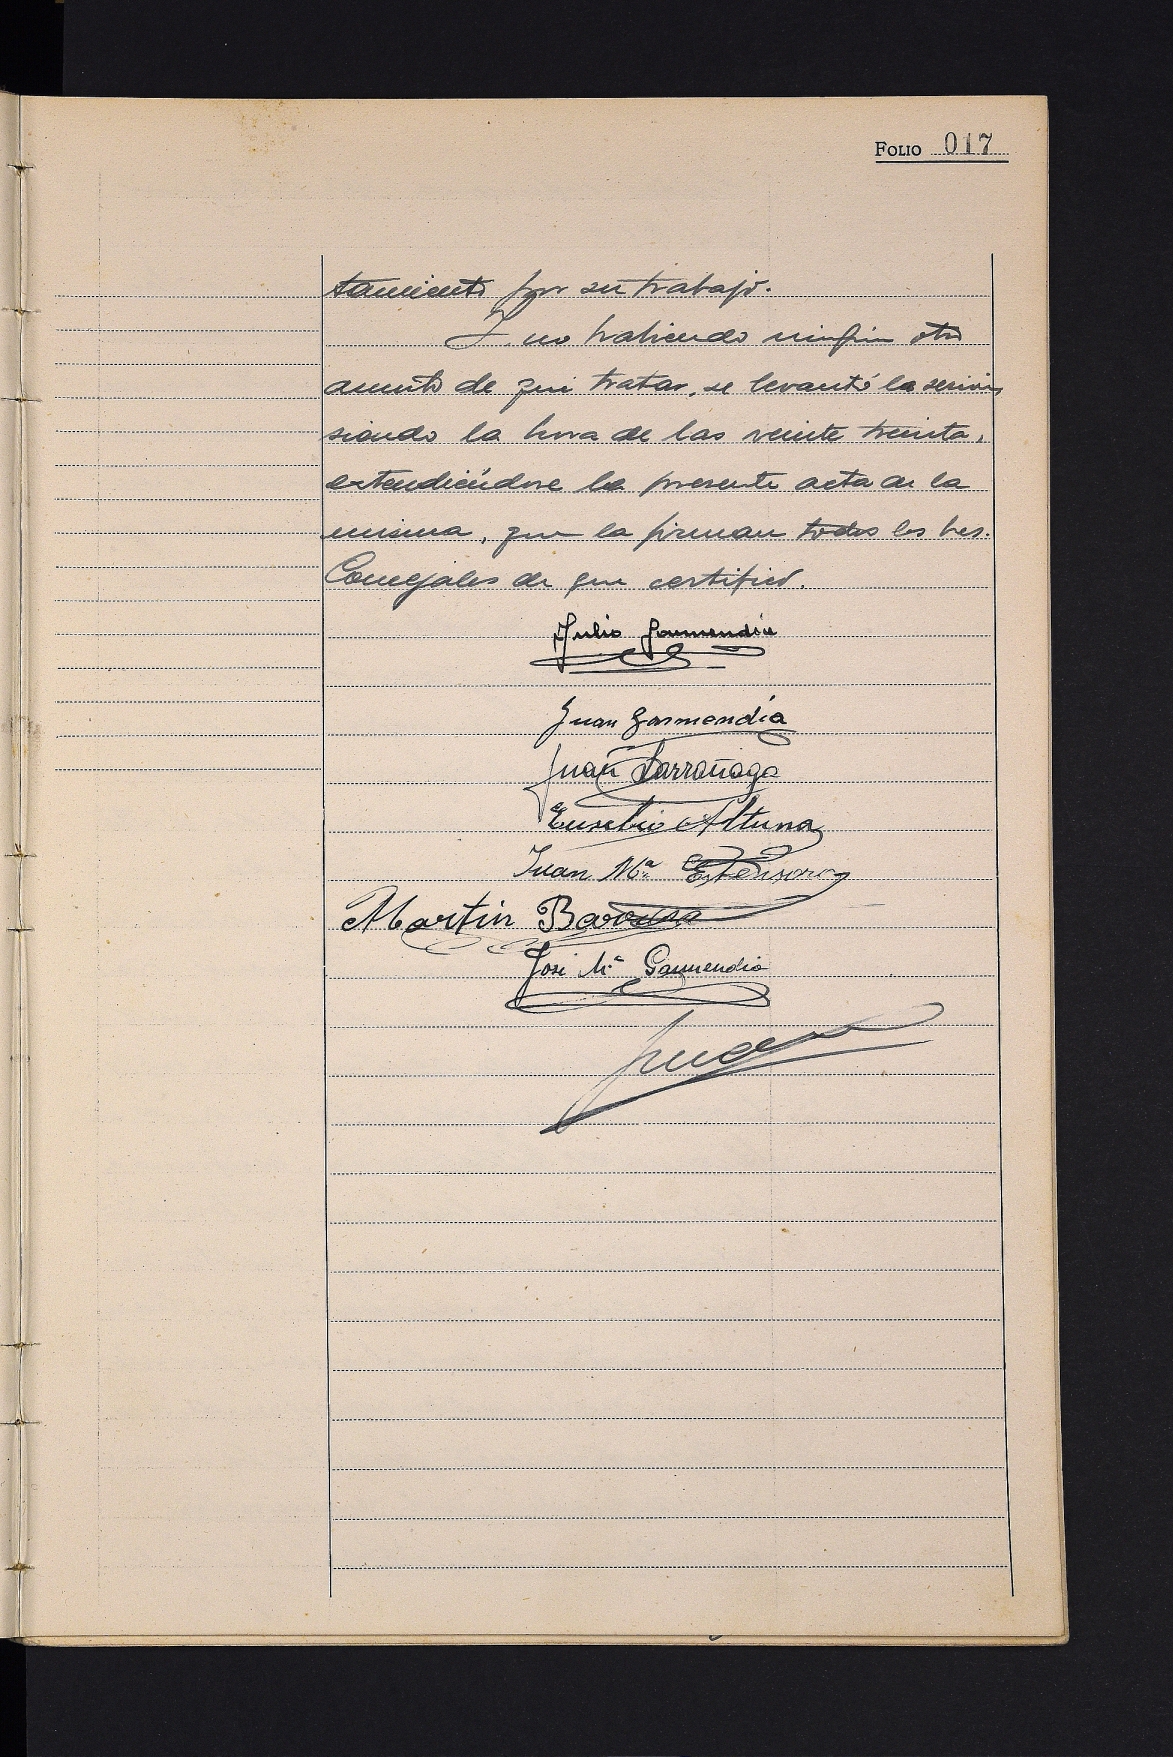 FOLIO 017
tamiento por su trabajo.
Y no habiendo ningún otro
asunto de que tratar, se levantó la sesión
siendo la hora de las veinte treinta,
extendiéndose la presente acta de la
misma, que la firman todos los Sres.
Concejales de que certifico.
Julio Garmendia
Juan Garmendia
Juan Larrañaga
Eusebio Altuna
Juan Mª Estensoro
Martín
José Mª Garmendia